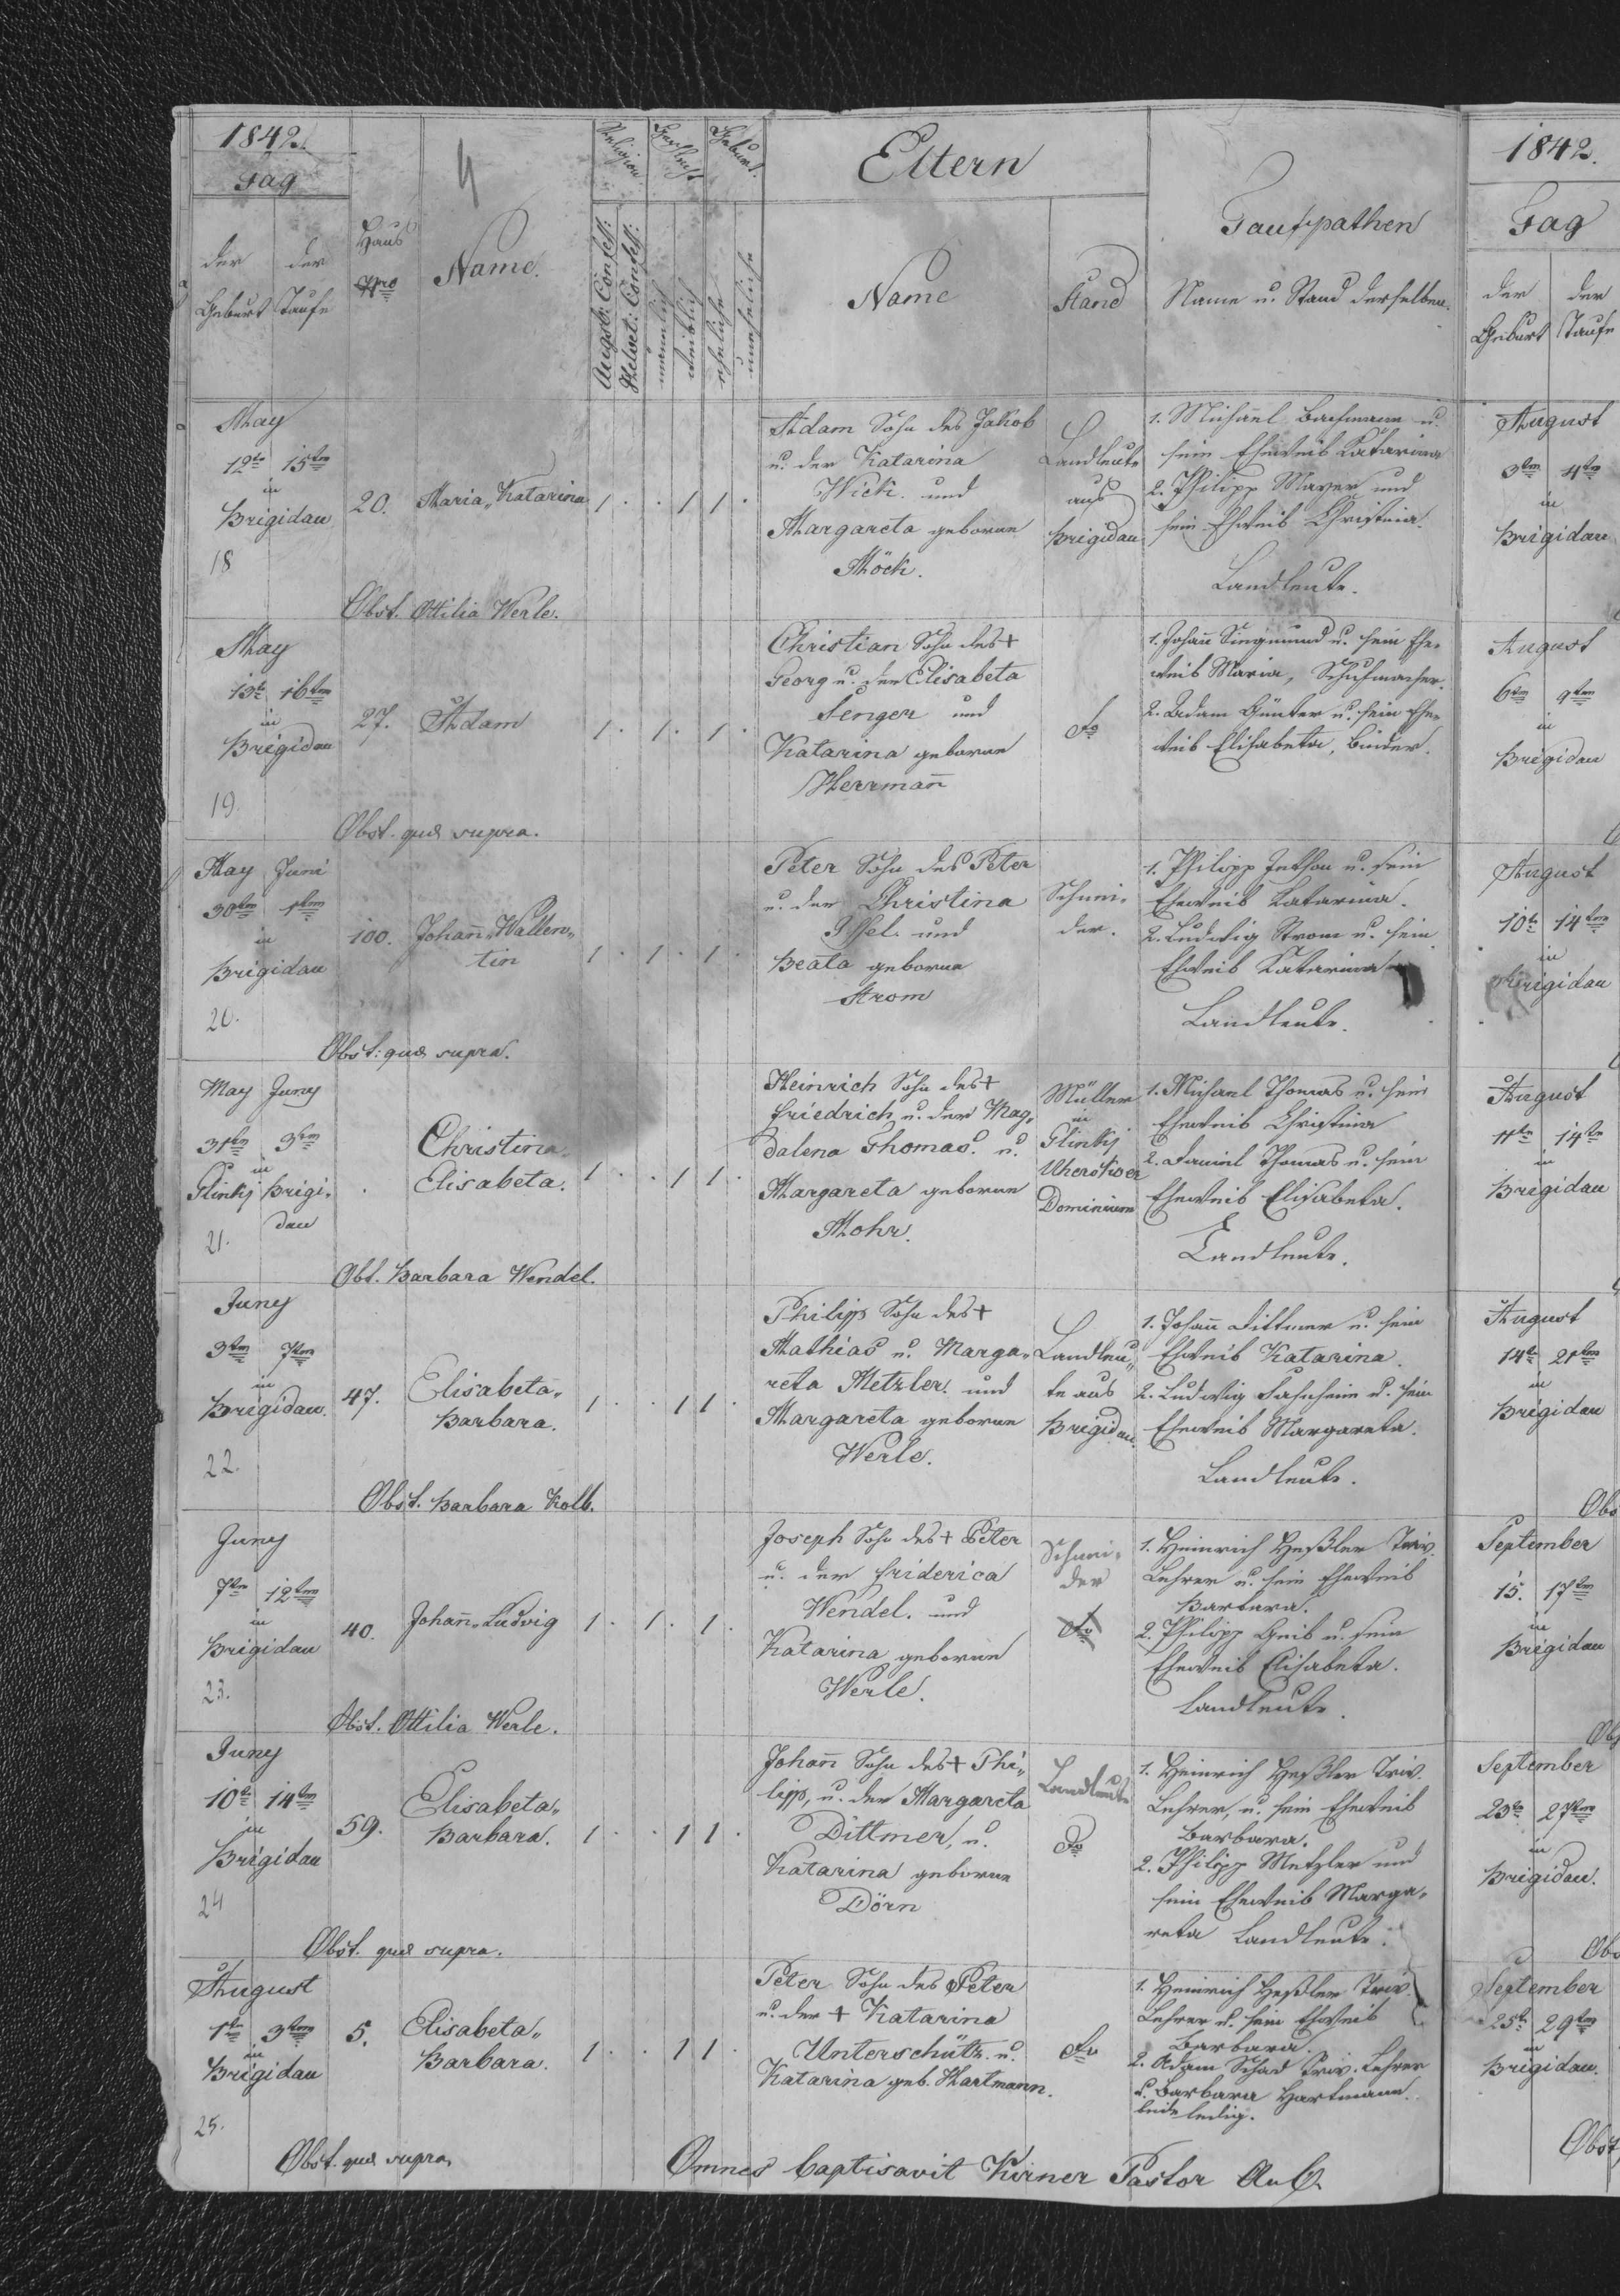 1842.
Tag
der Geburt
der Taufe
Haus Nro
Name.
Religion.
Geschlecht
Geburt.
Augsb: Confess:
Helvet: Confess:
mänlich
weiblich
eheliche
uneheliche
Eltern
Name
Stand
Taufpathen
Name u. Stand derselben.
May
12te 15ten
in
Brigidau
18
20.
Maria, Katarina
1 . . 1 1 .
Adam Sohn des Jakob
u. der Katarina
Wick. und
Margareta geborne
Möck.
Landleute
aus
Brigidau
1. Michael Bachmann u.
sein Eheweib Katarina
2. Philipp Mayer und
sein Eheweib Christina.
Landleute.
Obst. Ottilia Werle.
May
13te 16ten
in
Brigidau
19.
27.
Adam
1 . 1 . 1 .
Christian Sohn des +
Georg u. der Elisabeta
Senger und
Katarina geborne
Herrmann
do
1. Johann Siegmund u. sein Ehe-
weib Maria, Schuhmacher.
2. Adam Günter u. sein Ehe-
weib Elisabeta, Binder.
Obst. quæ supra.
May Juni
30ten 1ten
in
Brigidau
20.
100.
Johann, Wallen-
tin
1 . 1 . 1 .
Peter Sohn des Peter
u. der Christina
Issel und
Beata geborne
Strom
Schnei-
der.
1. Philipp u. sein
Eheweib Katarina.
2. Ludwig Strom u. sein
Eheweib Katarina
Landleute.
Obst: quæ supra.
May Juny
31ten 3ten
in
Glinky Brigi-
dau
21.
Christina
Elisabeta.
1 . . 1 1 .
Heinrich Sohn des +
Friedrich u. der Mag-
dalena Thomas. u.
Margareta geborne
Mohr.
Müller
in
Glinky
Uherskoer
Dominium
1. Michael Thomas u. sein
Eheweib Christina
2. Daniel Thomas u. sein
Eheweib Elisabeta.
Landleute.
Obst. Barbara Wendel.
Juny
3ten 7ten
in
Brigidau.
22.
47.
Elisabeta-
Barbara.
1 . . 1 1 .
Philipp Sohn des +
Mathias u. Marga-
reta Metzler. und
Margareta geborne
Werle.
Landleu-
te aus
Brigidau.
1. Johann Dittmer u. sein
Eheweib Katarina.
2. Ludwig u. sein
Eheweib Margareta.
Landleute.
Obst. Barbara Kolb.
Juny
7ten 12ten
in
Brigidau
23.
40.
Johann, Ludvig
1 . 1 . 1 .
Joseph Sohn des + Peter
u. der Friderica
Wendel. und
Katarina geborne
Werle.
Schnei-
der
do
1. Heinrich Heßler Triv.
Lehrer u. sein Eheweib
Barbara.
2. Philipp Geib u. sein
Eheweib Elisabeta.
Landleute.
Obst. Ottilia Werle.
Juny
10te 14ten
in
Brigidau
24
59.
Elisabeta-
Barbara.
1 . . 1 1 .
Johann Sohn des + Phi-
lipp, u. der Margareta
Dittmer, u.
Katarina geborne
Dörn
Landleute
do
1. Heinrich Heßler Triv.
Lehrer, u. sein Eheweib
Barbara.
2. Philipp Metzler und
sein Eheweib Marga-
reta Landleute.
Obst. quæ supra.
August
1te 3ten
in
Brigidau
25.
5.
Elisabeta-
Barbara.
1 . . 1 1 .
Peter Sohn des Peter
u. der + Katarina
Unterschütz. u.
Katarina geb. Hartmann.
do
1. Heinrich Heßler Triv.
Lehrer u. sein Eheweib
Barbara.
2. Adam Schad Triv. Lehrer
u. Barbara Hartmann.
beide ledig.
Obst. quæ supra.
Omnes baptisavit Kirner Pastor
1842.
Tag
der Geburt
der Taufe
August
3ten 4ten
in
Brigidau
August
6ten 9ten
in
Brigidau
August
10te 14ten
in
Brigidau
August
11te 14te
in
Brigidau
August
14te 21ten
in
Brigidau
Obs
September
15. 17ten
in
Brigidau
Obs
September
23te 27ten
in
Brigidau.
Obs
September
25te 29ten
in
Brigidau.
Obst